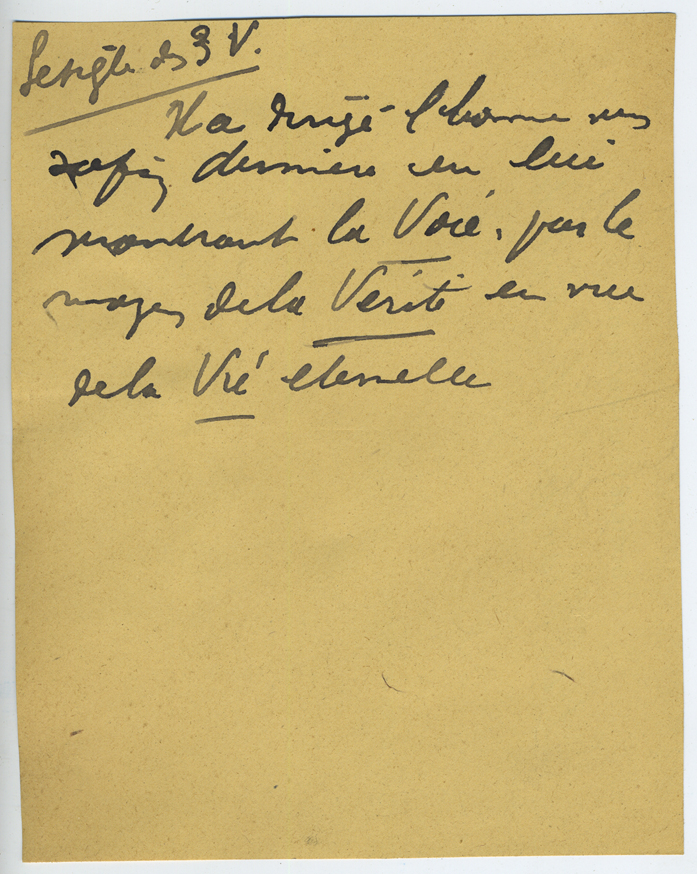 Le sigle des 3 V.
Il a dirigé l'homme vers
sa fin dernière en lui
montrant la Voie, par le
moyen de la Vérité en vue
de la Vie éternelle